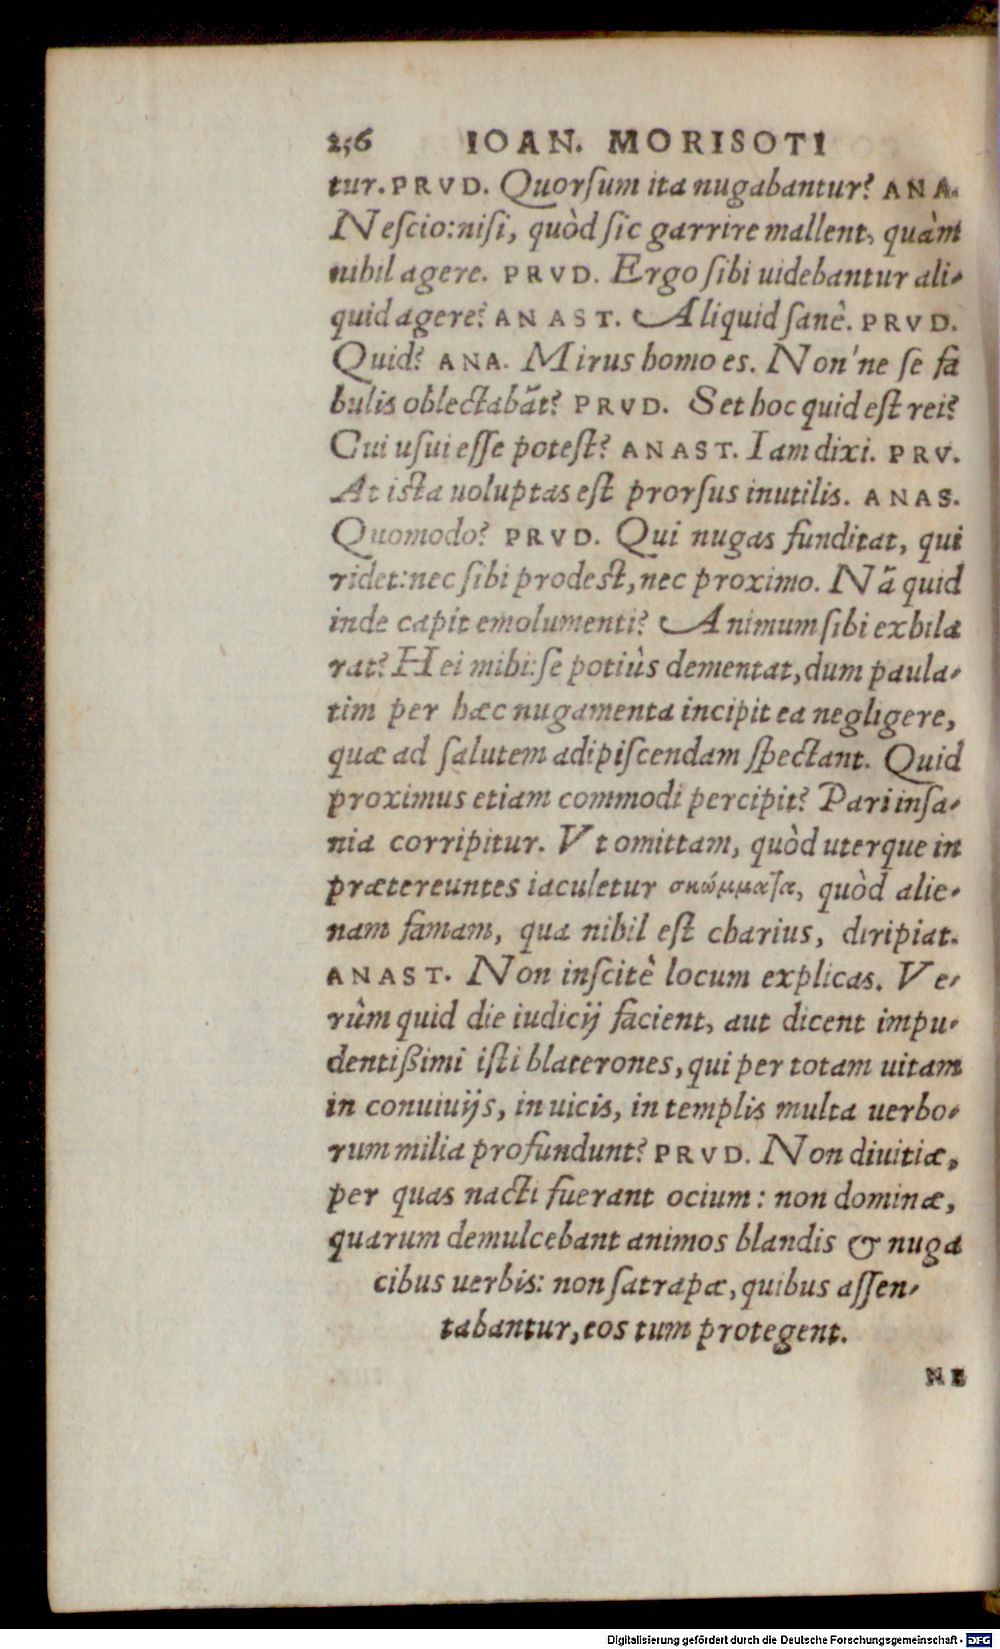 256 IOAN. MORISOTI
tur. PRVD. Quorsum ita nugabantur? ANA.
Nescio: nisi, quòd sic garrire mallent, quàm
nihil agere. PRVD. Ergo sibi uidebantur ali-
quid agere? ANAST. Aliquid sanè. PRVD.
Quid? ANA. Mirus homo es. Non'ne se fa
bulis oblectabãt? PRVD. Set hoc quid est rei?
Cui usui esse potest? ANAST. Iam dixi. PRV.
At ista uoluptas est prorsus inutilis. ANAS.
Quomodo? PRVD. Qui nugas funditat, qui
ridet: nec sibi prodest, nec proximo. Nã quid
inde capit emolumenti? Animum sibi exhila
rat? Hei mihi: se potiùs dementat, dum paula-
tim per hæc nugamenta incipit ea negligere,
quæ ad salutem adipiscendam spectant. Quid
proximus etiam commodi percipit? Pari insa-
nia corripitur. Vt omittam, quòd uterque in
prætereuntes iaculetur σκώμματα, quòd alie-
nam famam, qua nihil est charius, diripiat.
ANAST. Non inscitè locum explicas. Ve-
rùm quid die iudicij facient, aut dicent impu-
dentißimi isti blaterones, qui per totam uitam
in conuiuijs, in uicis, in templis multa uerbo-
rum milia profundunt? PRVD. Non diuitiæ,
per quas nacti fuerant ocium: non dominæ,
quarum demulcebant animos blandis & nuga
cibus uerbis: non satrapæ, quibus assen-
tabantur, eos tum protegent.
NE
Digitalisierung gefördert durch die Deutsche Forschungsgemeinschaft - DFG